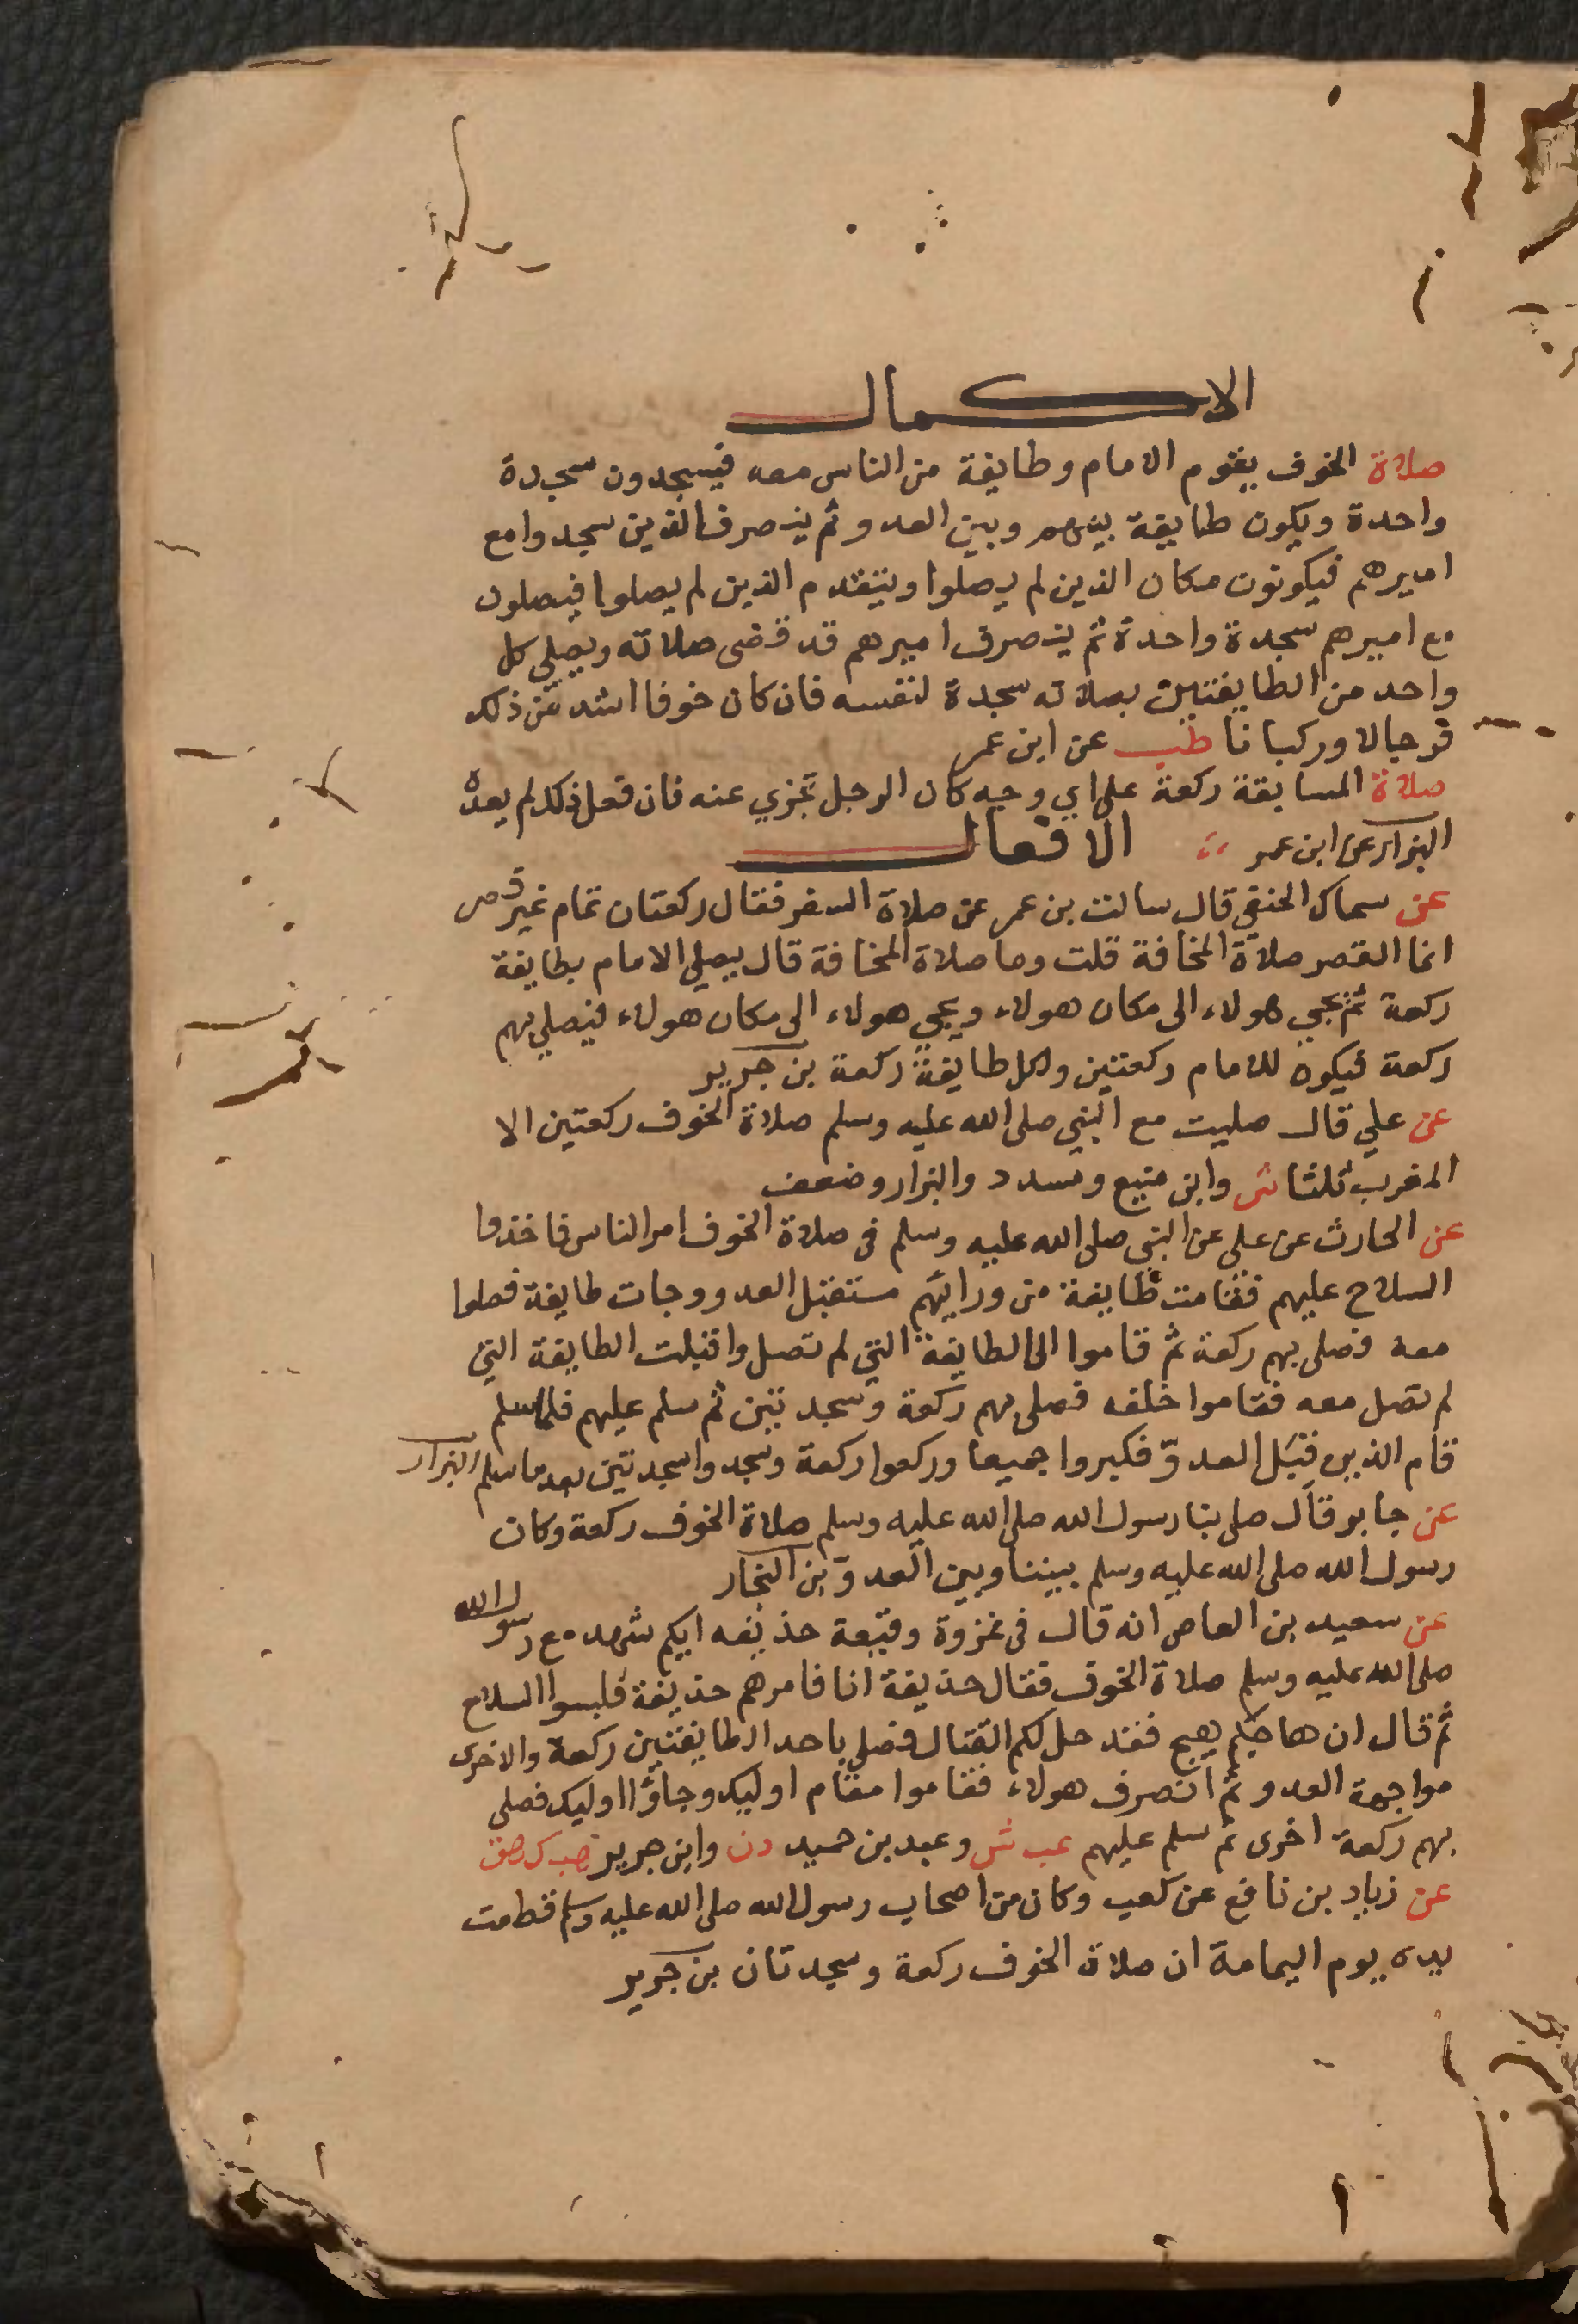 الاكمال
صلاة الخوف يقوم الامام وطايفة من الناس معه فيسجدون سجدة
واحدة ويكون طايفة بينهم وبين العدو ثم ينصرف الذين سجدوا مع
اميرهم فيكونون مكان الذين لم يصلوا ويتقدم الذين لم يصلوا فيصلون
مع اميرهم سجدة واحدة ثم ينصرف اميرهم قد قضى صلاته ويصلي كل
واحد من الطايفتين بصلاته سجدة لنفسه فان كان خوفا اشد من ذلك
فرجالا وركبانا طب عن ابن عمر
صلاة المسايفة ركعة على اي وجه كان الرجل تجزي عنه فان فعل ذلك لم يعده
البزار عن ابن عمر
الافعال
عن سماك الحنفي قال سالت بن عمر عن صلاة السفر فقال ركعتان تمام غير قصر
انما القصر صلاة المخافة قلت وما صلاة المخافة قال يصلي الامام بطايفة
ركعة ثم يجي هولاء الى مكان هولاء ويجي هولاء الى مكان هولاء فيصلي بهم
ركعة فيكون للامام ركعتين ولكل طايفة ركعة بن جرير
عن علي قال صليت مع النبي صلى الله عليه وسلم صلاة الخوف ركعتين الا
المغرب ثلثا ش وابن منيع ومسدد والبزار وضعف
عن الحارث عن علي عن النبي صلى الله عليه وسلم في صلاة الخوف امر الناس فاخذوا
السلاح عليهم فقامت طايفة من ورائهم مستقبل العدو وجات طايفة فصلوا
معه فصلى بهم ركعة ثم قاموا الى الطايفة التي لم تصل واقبلت الطايفة التي
لم تصل معه فقاموا خلفه فصلى بهم ركعة وسجدتين ثم سلم عليهم فلما سلم
قام الذين قبَل العدوّ فكبروا جميعا وركعوا ركعة وسجدوا سجدتين بعد ما سلم البزار
عن جابر قال صلى بنا رسول الله صلى الله عليه وسلم صلاة الخوف ركعة وكان
رسول الله صلى الله عليه وسلم بيننا وبين العدوّ بن النجار
عن سعيد بن العاص انه قال في غزوة وقبعة حذيفه ايكم شهد مع رسول الله
صلى الله عليه وسلم صلاة الخوف فقال حذيفة انا فامرهم حذيفة فلبسوا السلاح
ثم قال ان هاجكم هيج فقد حل لكم القتال فصلى باحد الطايفتين ركعة والاخرى
مواجهة العدو ثم انصرف هولاء فقاموا مقام اوليك وجاؤا اوليك فصلى
بهم ركعة اخرى ثم سلم عليهم عب ش وعبد بن حميد د ن وابن جرير حب ك هق
عن زياد بن نافع عن كعب وكان من اصحاب رسول الله صلى الله عليه وسلم قطعت
يده يوم اليمامة ان صلاة الخوف ركعة وسجدتان بن جرير